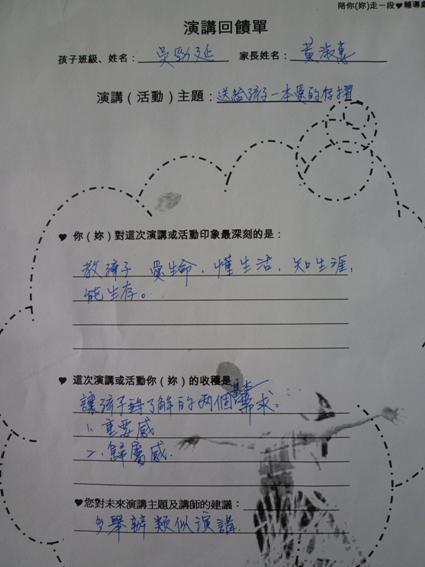 陪你(妳)走一段♥輔導
演講回饋單
孩子班級、姓名： 吳勁廷 家長姓名： 黃淑惠
演講（活動）主題：送給孩子一本愛的存摺
♥ 你（妳）對這次演講或活動印象最深刻的是：
教孩子 愛生命，懂生活，知生涯，
能生存。
♥ 這次演講或活動你（妳）的收穫是
讓孩子 了解的两個基本需求。
1. 重要感
2. 歸屬感.
♥您對未來演講主題及講師的建議：
多舉辦類似演講